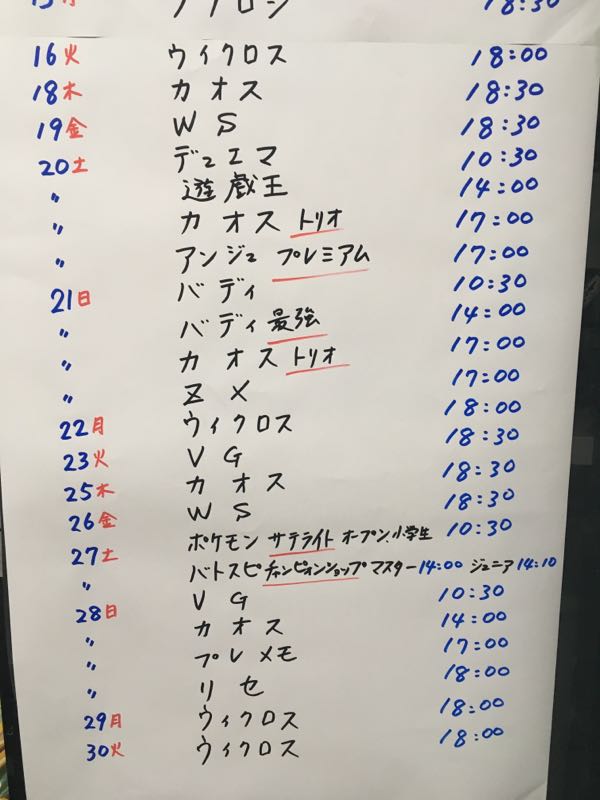 18:30
16火 ウィクロス 18:00
18木 カオス 18:30
19金 WS 18:30
20土 デュエマ 10:30
〃 遊戯王 14:00
〃 カオス トリオ 17:00
〃 アンジュ プレミアム 17:00
21日 バディ 10:30
〃 バディ最強 14:00
〃 カオストリオ 17:00
〃 ZX 17:00
22月 ウィクロス 18:00
23火 VG 18:30
25木 カオス 18:30
26金 WS 18:30
27土 ポケモン サテライト オープン,小学生 10:30
〃 バトスピチャンピオンショップ マスター14:00 ジュニア14:10
28日 VG 10:30
〃 カオス 14:00
〃 プレメモ 17:00
〃 リセ 18:00
29月 ウィクロス 18:00
30火 ウィクロス 18:00